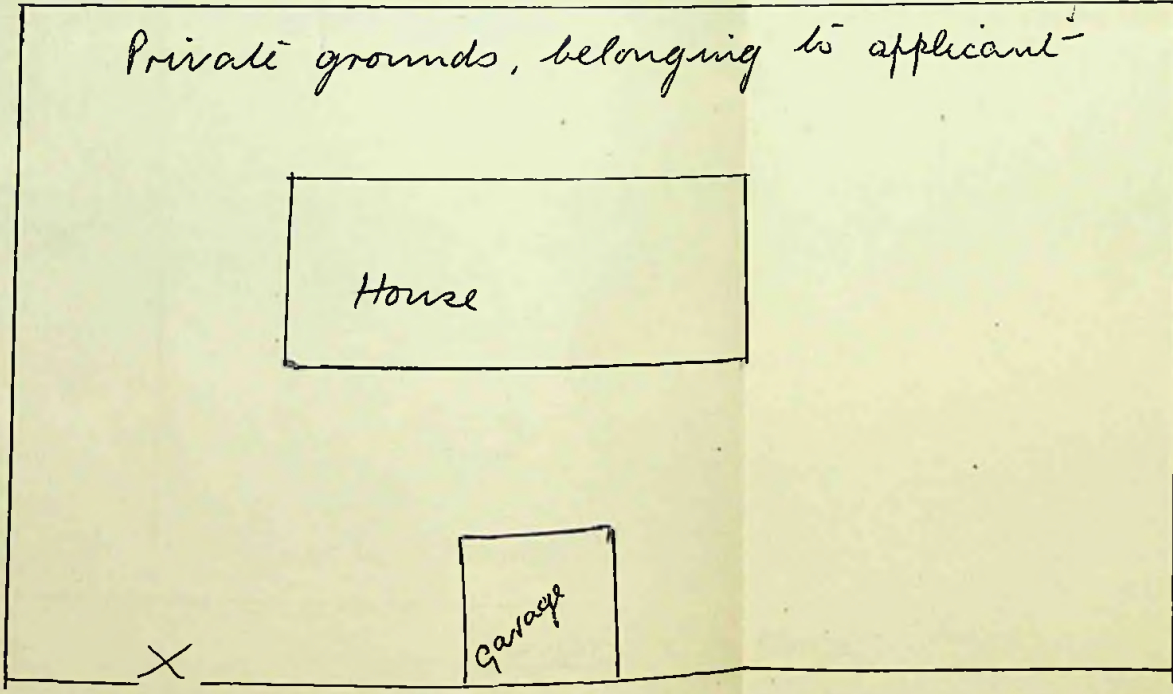 Private grounds, belonging to applicant
House
Garage
X